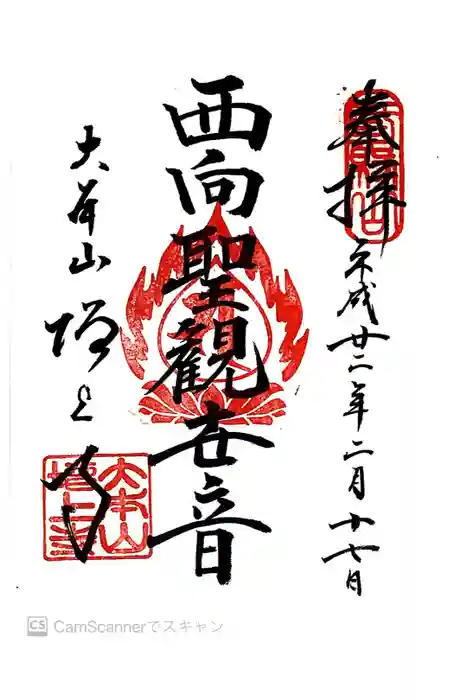 奉拝 平成廿二年二月十七日
西向聖觀世音
大本山 増上寺
大本山
増上寺
CS CamScannerでスキャン